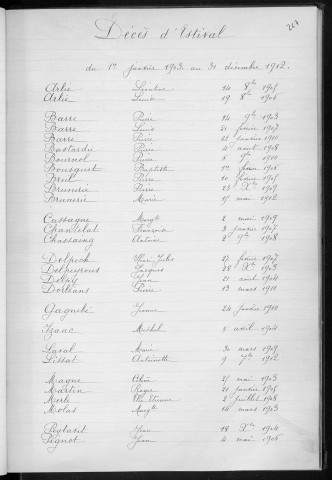 267
Décès d'Estival
du 1er janvier 1903 au 31 décembre 1912.
Arlie 14 8bre 1905
Arlie Louise 19 8bre 1906
Barre Pierre 14 9bre 1903
Barre Louis 21 février 1907
Barre Pierre 22 janvier 1910
Bastardie Pierre 4 août 1908
Bournol Pierre 5 9bre 1910
Bousquet Baptiste 1er 1906
Breil Pierre 10 février 1905
Brunerie Pierre 23 Xbre 1909
Brunerie Marie 15 mai 1912
Cassagne Margte 2 mai 1909
Chantelat Françoise 3 janvier 1907
Chassaing Antoine 2 9bre 1908
Delpech Marie Julie 27 février 1907
Delpeyroux Jacques 28 Xbre 1903
Delpy Jean 21 août 1904
Dorléans Pierre 13 mars 1910
Gagnebé Jeanne 24 janvier 1910
Izanc Michel 5 avril 1904
Laval Marie 30 mars 1909
Lissat Antoinette 9 7bre 1912
Magne 25 mai 1903
Martin 21 janvier 1905
Merle Etienne 2 juillet 1908
Molas Margte 14 mars 1903
Jean 18 Xbre 1904
Pignot Jean 4 mai 1906